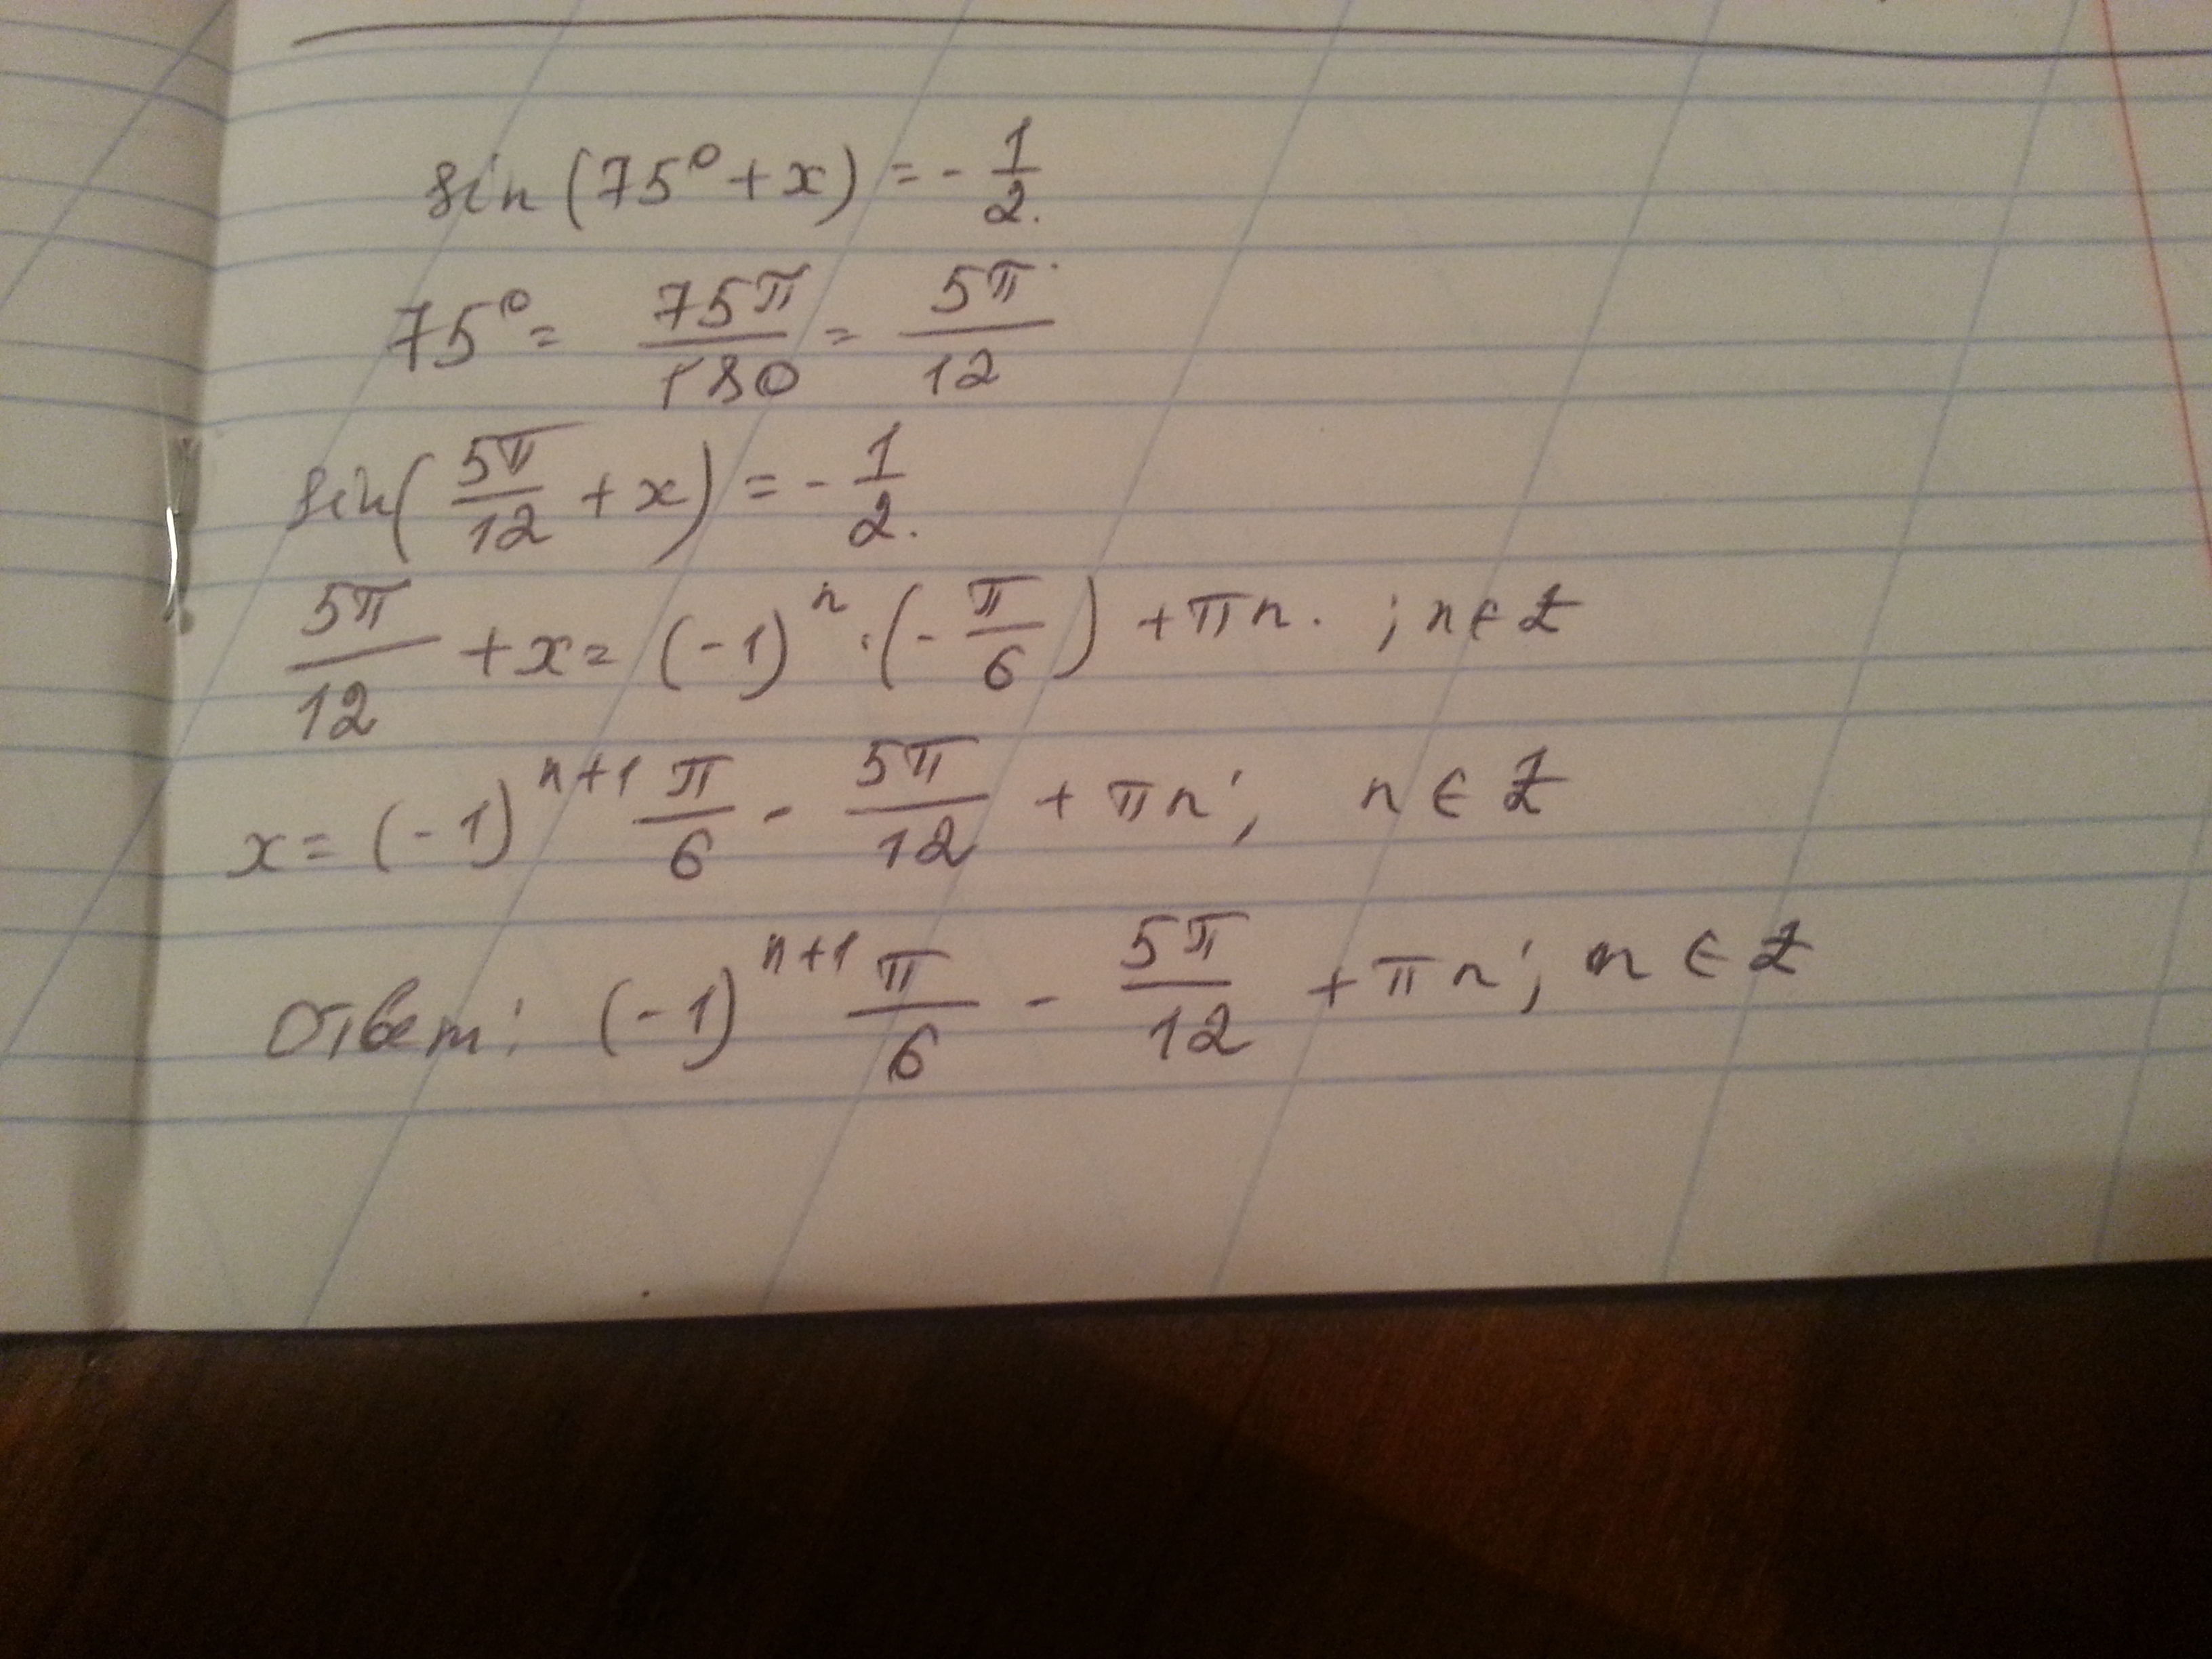 sin(75°+x) = -1/2.
75° = 75π/180 = 5π/12
sin(5π/12 + x) = -1/2.
5π/12 + x = (-1)^n · (-π/6) + πn. ; n ∈ Z
x = (-1)^{n+1} π/6 - 5π/12 + πn; n ∈ Z
Ответ: (-1)^{n+1} π/6 - 5π/12 + πn; n ∈ Z